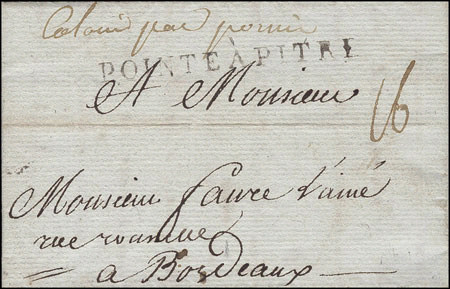 Colonie par
POINTE À PITRE
A Monsieur
16
Monsieur faure L'ainé
rue
a Bordeaux